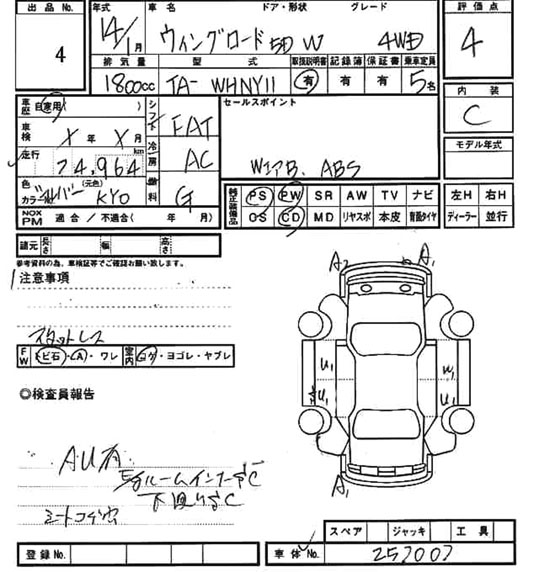 出品No. 4
年式 14/1月
車名 ウィングロード 5D W 4WD
ドア・形状 グレード
評価点 4
排気量 1800cc
型式 TA- WHNY11
取扱説明書 有
記録簿 有
保証書 有
乗車定員 5名
内装 C
車歴 自家用( )
シフト FAT
セールスポイント
車検 X年 X月
冷房 AC
モデル年式
走行 74,964 km
WエアB. ABS
色 シルバー (元色)
カラーNo. KY0
燃料 G
純正装備品 PS PW SR AW TV ナビ
左H 右H
CS CD MD リヤスポ 本皮 背面タイヤ
ディーラー 並行
NOX PM 適合 / 不適合( 年 月)
諸元 長さ 幅 高さ
参考資料の為、車検証等でご確認お願い致します。
注意事項
A2 A1
スタットレス
FW トビ石・A・ワレ 室内 コゲ・ヨゴレ・ヤブレ
U1 W1
U1 U1
◎検査員報告
AU有
ルームインナー
下回り
A1
スペア ジャッキ 工具
登録No.
車体No. 257007